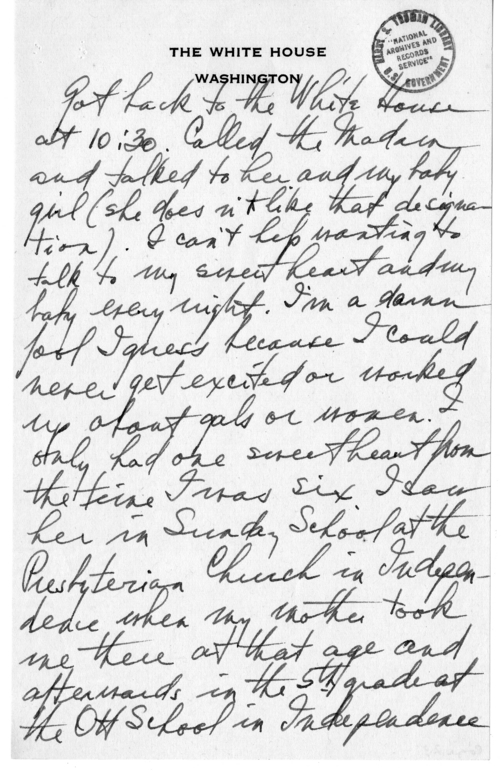 THE WHITE HOUSE
WASHINGTON
HARRY S. TRUMAN LIBRARY
"NATIONAL
ARCHIVES AND
RECORDS
SERVICE"
U.S. GOVERNMENT
Got back to the White House
at 10:30. Called the Madam
and talked to her and my baby
girl (she does n't like that designa-
tion). I can't help wanting to
talk to my sweetheart and my
baby every night. I'm a damn
fool I guess because I could
never get excited or worked
up about gals or women. I
only had one sweetheart from
the time I was six. I saw
her in Sunday School at the
Presbyterian Church in Indepen-
dence when my mother took
me there at that age and
afterwards in the 5th grade at
the Ott School in Independence